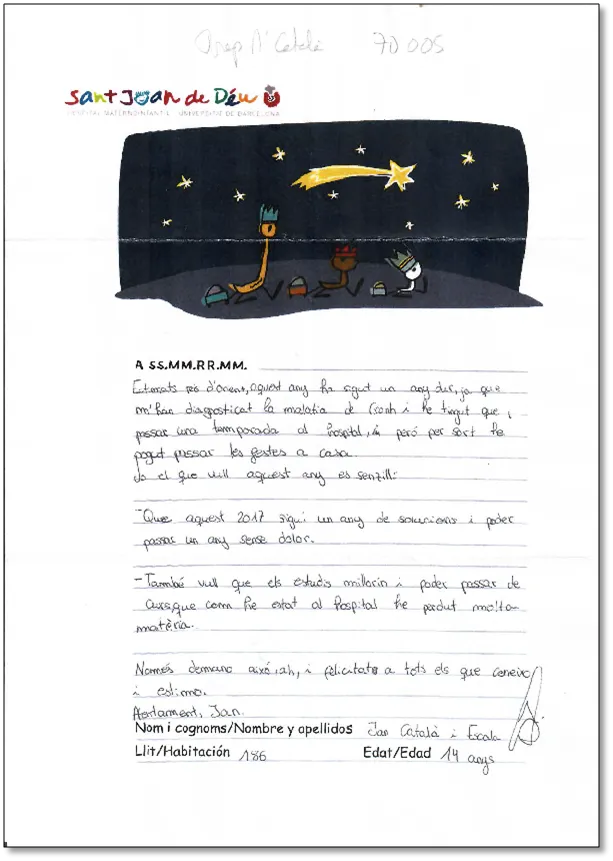 Josep Mª Català 70005
Sant Joan de Déu
HOSPITAL MATERNOINFANTIL - UNIVERSITAT DE BARCELONA
A SS.MM.RR.MM.
Estimats reis d'orient, aquest any ha sigut un any dur, ja que
m'han diagnosticat la malatia de Cronh i he tingut que
passar una temporada al hospital, però per sort he
pogut passar les festes a casa.
Jo el que vull aquest any es senzill:
-Que aquest 2017 sigui un any de solucions i poder
passar un any sense dolor.
-També vull que els estudis millorin i poder passar de
curs, que com he estat al hospital he perdut molta
matèria.
Només demano això, ah, i felicitats a tots els que coneixo
i estimo.
Atentament, Jan.
Nom i cognoms/Nombre y apellidos Jan Català i Escala
Llit/Habitación 186 Edat/Edad 14 anys